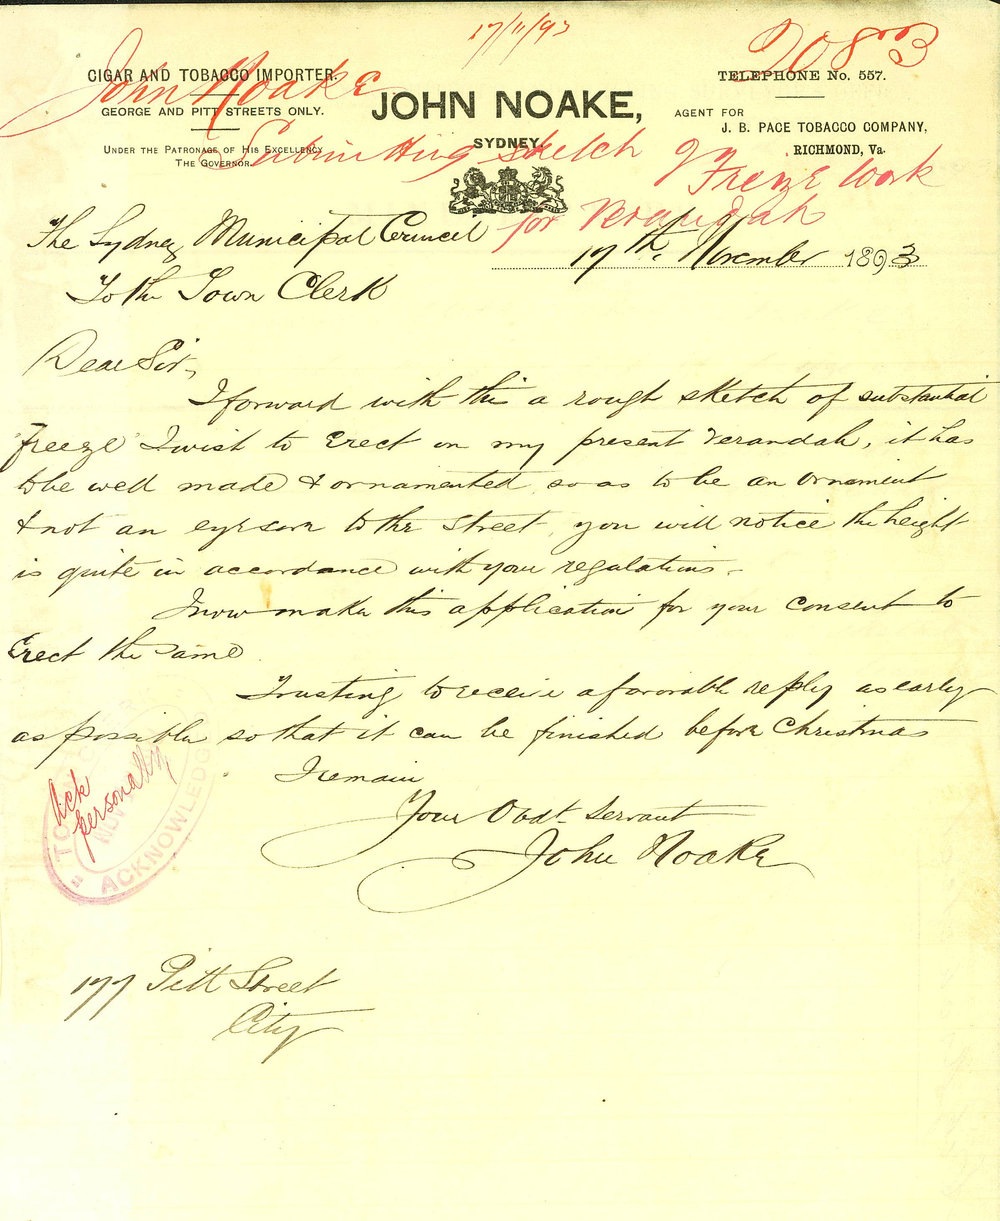 17/11/93
2083
John Noake
Submitting sketch of Freeze work
for Verandah
CIGAR AND TOBACCO IMPORTER.
GEORGE AND PITT STREETS ONLY.
UNDER THE PATRONAGE OF HIS EXCELLENCY
THE GOVERNOR.
JOHN NOAKE,
SYDNEY.
TELEPHONE No. 557.
AGENT FOR
J. B. PACE TOBACCO COMPANY,
RICHMOND, Va.
17th. November 1893
The Sydney Municipal Council
To the Town Clerk
Dear Sir,
I forward with this a rough sketch of substantial
"Freeze" I wish to Erect on my present Verandah, it has
to be well made & ornamented so as to be an ornament
& not an eyesore to the Street, you will notice the height
is quite in accordance with your regulations.
I now make this application for your consent to
Erect the same
Trusting to receive a favorable reply as early
as possible so that it can be finished before Christmas
I remain
Your Obdt Servant
John Noake
Ack
personally
TOWN CLERK
NOV
ACKNOWLEDGED
177 Pitt Street
City